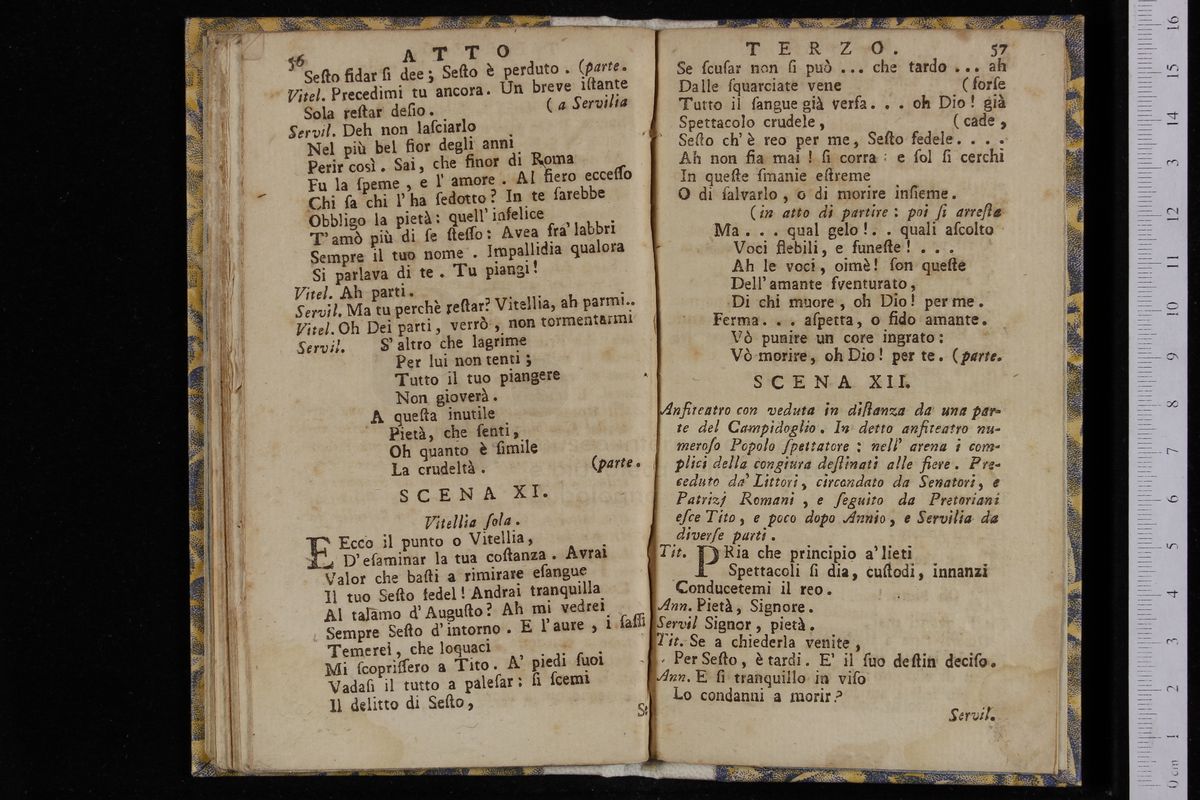 56
ATTO
Seſto fidar ſi dee; Seſto è perduto. (parte.
Vitel. Precedimi tu ancora. Un breve iſtante
Sola reſtar deſio. (a Servilia
Servil. Deh non laſciarlo
Nel più bel fior degli anni
Perir così. Sai, che finor di Roma
Fu la ſpeme, e l' amore. Al fiero ecceſſo
Chi ſa chi l' ha ſedotto? In te ſarebbe
Obbligo la pietà: quell' infelice
T' amò più di ſe ſteſſo: Avea fra' labbri
Sempre il tuo nome. Impallidia qualora
Si parlava di te. Tu piangi!
Vitel. Ah parti.
Servil. Ma tu perchè reſtar? Vitellia, ah parmi..
Vitel. Oh Dei parti, verrò, non tormentarmi
Servil. S' altro che lagrime
Per lui non tenti;
Tutto il tuo piangere
Non gioverà.
A queſta inutile
Pietà, che ſenti,
Oh quanto è ſimile
La crudeltà. (parte.
SCENA XI.
Vitellia ſola.
EEcco il punto o Vitellia,
D' eſaminar la tua coſtanza. Avrai
Valor che baſti a rimirare eſangue
Il tuo Seſto fedel! Andrai tranquilla
Al talamo d' Auguſto? Ah mi vedrei
Sempre Seſto d' intorno. E l' aure, i ſaſſi
Temerei, che loquaci
Mi ſcopriſſero a Tito. A' piedi ſuoi
Vadaſi il tutto a paleſar: ſi ſcemi
Il delitto di Seſto,
Se
TERZO.
57
Se ſcuſar non ſi può ... che tardo ... ah
Dalle ſquarciate vene (forſe
Tutto il ſangue già verſa. . . oh Dio! già
Spettacolo crudele, (cade,
Seſto ch' è reo per me, Seſto fedele. . . .
Ah non fia mai! ſi corra: e ſol ſi cerchi
In queſte ſmanie eſtreme
O di ſalvarlo, o di morire inſieme.
(in atto di partire: poi ſi arreſta
Ma . . . qual gelo!. . quali aſcolto
Voci flebili, e funeſte! . . .
Ah le voci, oimè! ſon queſte
Dell' amante ſventurato,
Di chi muore, oh Dio! per me.
Ferma. . . aſpetta, o fido amante.
Vò punire un core ingrato:
Vò morire, oh Dio! per te. (parte.
SCENA XII.
Anfiteatro con veduta in diſtanza da una par-
te del Campidoglio. In detto anfiteatro nu-
meroſo Popolo ſpettatore: nell' arena i com-
plici della congiura deſtinati alle fiere. Pre-
ceduto da' Littori, circondato da Senatori, e
Patrizj Romani, e ſeguito da Pretoriani
eſce Tito, e poco dopo Annio, e Servilia da
diverſe parti.
Tit. PRia che principio a' lieti
Spettacoli ſi dia, cuſtodi, innanzi
Conducetemi il reo.
Ann. Pietà, Signore.
Servil Signor, pietà.
Tit. Se a chiederla venite,
Per Seſto, è tardi. E' il ſuo deſtin deciſo.
Ann. E ſi tranquillo in viſo
Lo condanni a morir?
Servil.
0 cm 1 2 3 4 5 6 7 8 9 10 11 12 13 14 15 16